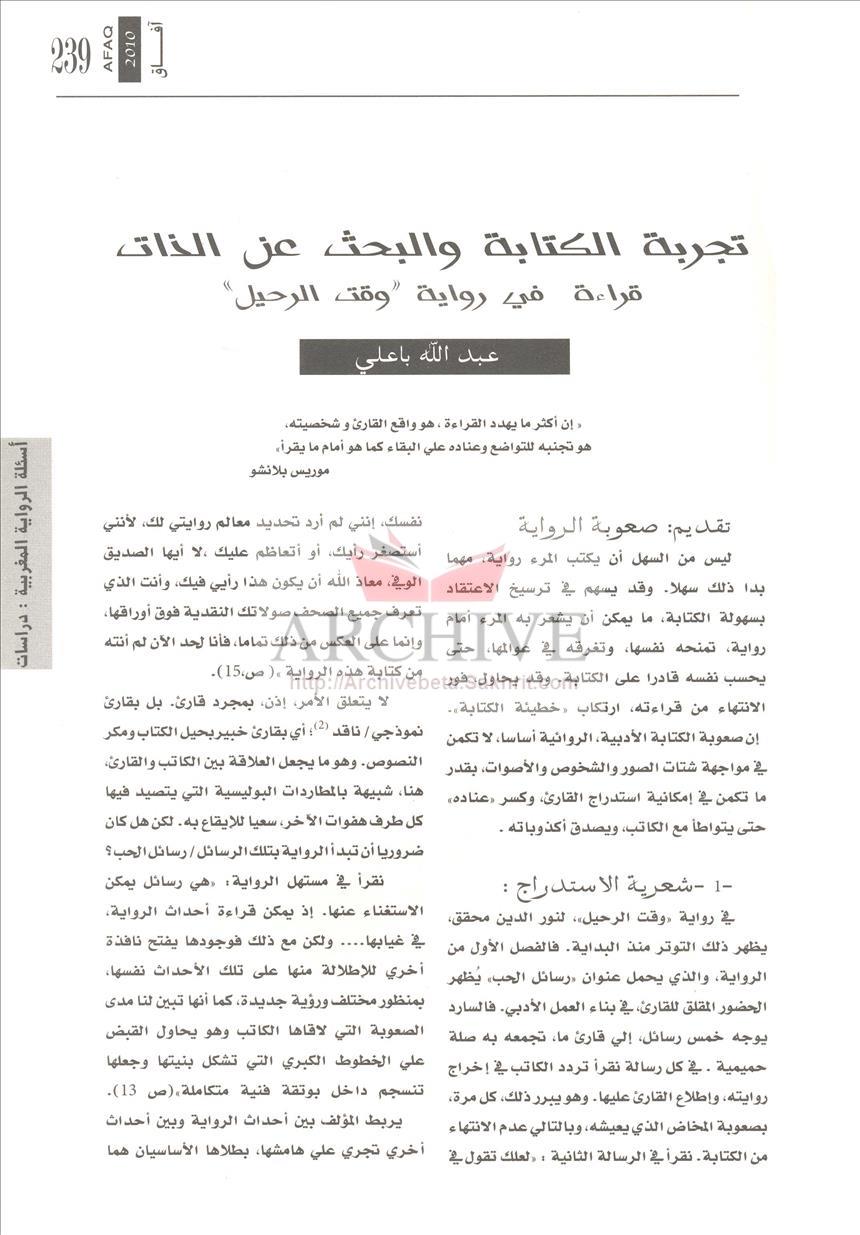 239
AFAQ
2010
آفـــاق
تجربة الكتابة والبحث عن الذات
قراءة في رواية "وقت الرحيل"
عبد الله باعلي
« إن أكثر ما يهدد القراءة ، هو واقع القارئ و شخصيته،
هو تجنبه للتواضع وعناده علي البقاء كما هو أمام ما يقرأ»
موريس بلانشو
أسئلة الرواية المغربية : دراسات
تقديم: صعوبة الرواية
ليس من السهل أن يكتب المرء رواية، مهما
بدا ذلك سهلا. وقد يسهم في ترسيخ الاعتقاد
بسهولة الكتابة، ما يمكن أن يشعر به المرء أمام
رواية، تمنحه نفسها، وتغرقه في عوالمها، حتى
يحسب نفسه قادرا على الكتابة. وقد يحاول، فور
الانتهاء من قراءته، ارتكاب «خطيئة الكتابة».
إن صعوبة الكتابة الأدبية، الروائية أساسا، لا تكمن
في مواجهة شتات الصور والشخوص والأصوات، بقدر
ما تكمن في إمكانية استدراج القارئ، وكسر «عناده»
حتى يتواطأ مع الكاتب، ويصدق أكذوباته .
-1 -شعرية الاستدراج :
في رواية «وقت الرحيل»، لنور الدين محقق،
يظهر ذلك التوتر منذ البداية. فالفصل الأول من
الرواية، والذي يحمل عنوان «رسائل الحب» يُظهر
الحضور المقلق للقارئ، في بناء العمل الأدبي. فالسارد
يوجه خمس رسائل، إلي قارئ ما، تجمعه به صلة
حميمية . في كل رسالة نقرأ تردد الكاتب في إخراج
روايته، وإطلاع القارئ عليها. وهو يبرر ذلك، كل مرة،
بصعوبة المخاض الذي يعيشه، وبالتالي عدم الانتهاء
من الكتابة. نقرأ في الرسالة الثانية : «لعلك تقول في
نفسك، إنني لم أرد تحديد معالم روايتي لك، لأنني
أستصغر رأيك، أو أتعاظم عليك ،لا أيها الصديق
الوفي، معاذ الله أن يكون هذا رأيي فيك، وأنت الذي
تعرف جميع الصحف صولاتك النقدية فوق أوراقها،
وإنما على العكس من ذلك تماما، فأنا لحد الآن لم أنته
من كتابة هذه الرواية »( ص،15).
لا يتعلق الأمر، إذن، بمجرد قارئ. بل بقارئ
نموذجي/ ناقد (2)؛ أي بقارئ خبير بحيل الكتاب ومكر
النصوص. وهو ما يجعل العلاقة بين الكاتب والقارئ،
هنا، شبيهة بالمطاردات البوليسية التي يتصيد فيها
كل طرف هفوات الآخر، سعيا للإيقاع به. لكن هل كان
ضروريا أن تبدأ الرواية بتلك الرسائل/ رسائل الحب؟
نقرأ في مستهل الرواية: «هي رسائل يمكن
الاستغناء عنها. إذ يمكن قراءة أحداث الرواية،
في غيابها.... ولكن مع ذلك فوجودها يفتح نافذة
أخري للإطلالة منها على تلك الأحداث نفسها،
بمنظور مختلف ورؤية جديدة، كما أنها تبين لنا مدى
الصعوبة التي لاقاها الكاتب وهو يحاول القبض
علي الخطوط الكبري التي تشكل بنيتها وجعلها
تنسجم داخل بوتقة فنية متكاملة»(ص 13).
يربط المؤلف بين أحداث الرواية وبين أحداث
أخري تجري علي هامشها، بطلاها الأساسيان هما
ARCHIVE
http://Archivebeta.Sakhrit.com